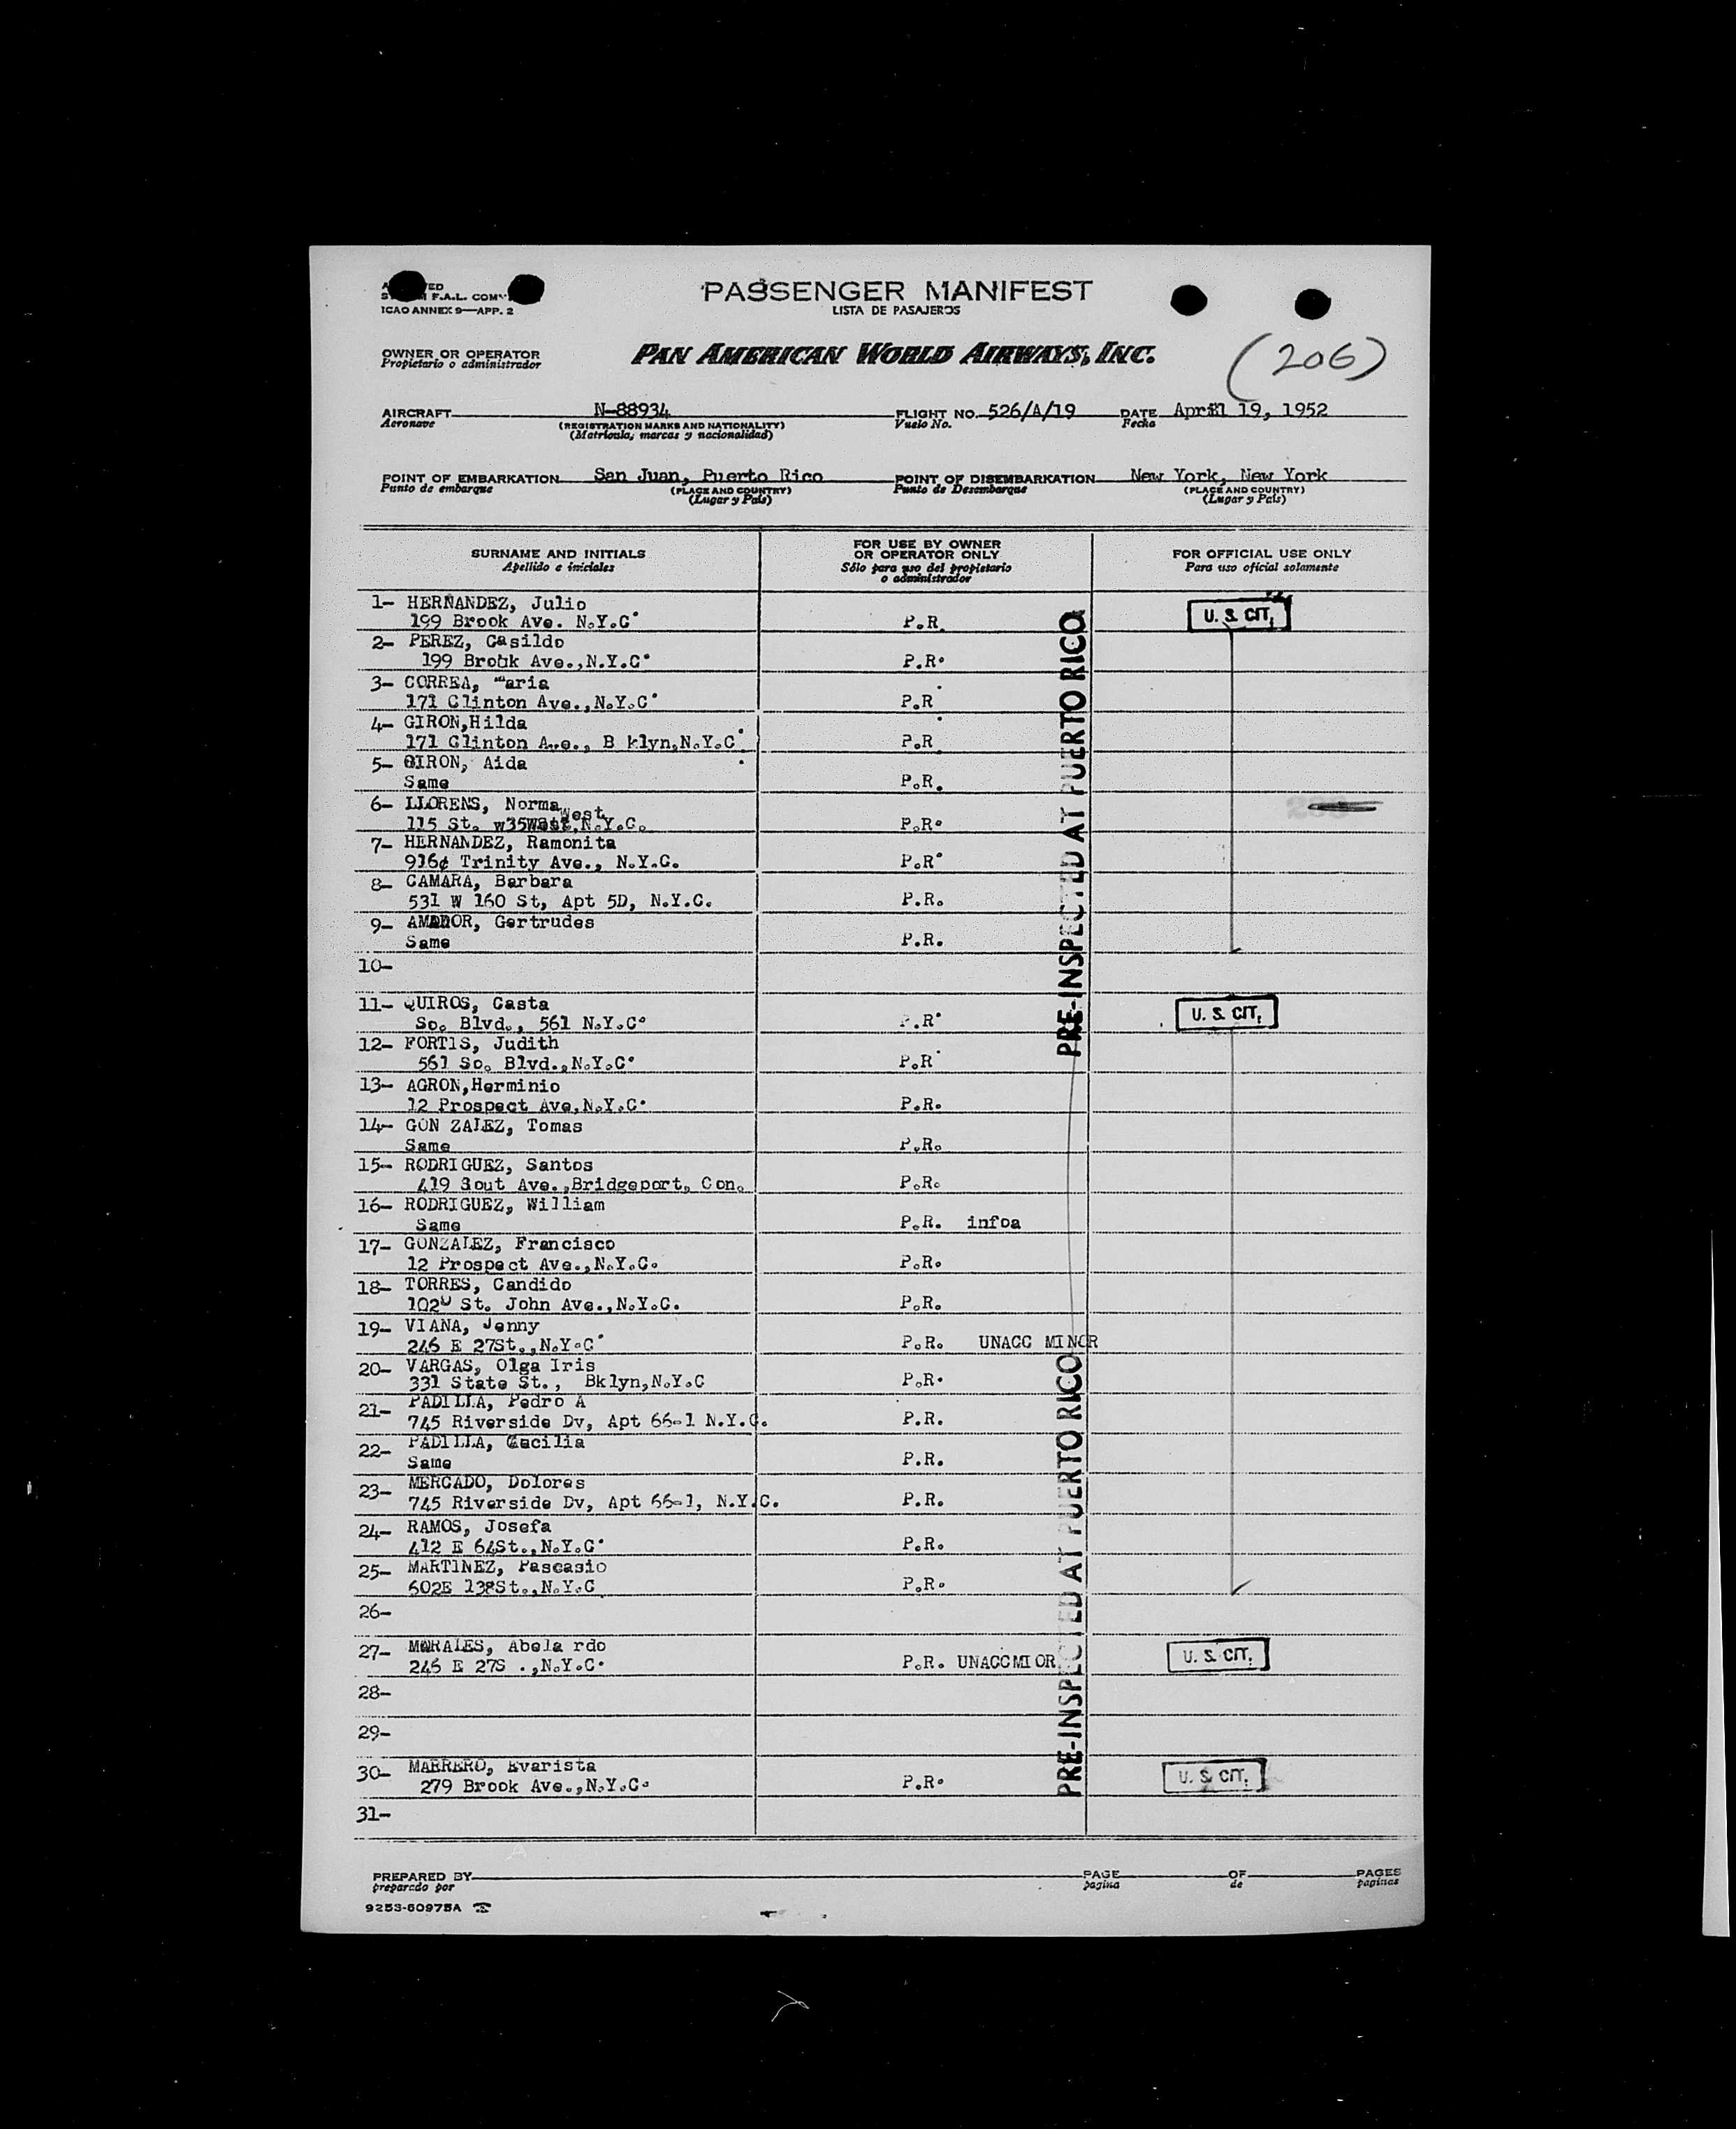 PASSENGER MANIFEST
LISTA DE PASAJEROS
F.A.L. COM
ICAO ANNEX 9—APP. 2
OWNER OR OPERATOR
Propietario o administrador
PAN AMERICAN WORLD AIRWAYS, INC.
(206)
AIRCRAFT N-88934 FLIGHT NO. 526/A/19 DATE April 19, 1952
Aeronave (REGISTRATION MARKS AND NATIONALITY) Vuelo No. Fecha
(Matrícula, marcas y nacionalidad)
POINT OF EMBARKATION San Juan, Puerto Rico POINT OF DISEMBARKATION New York, New York
Punto de embarque (PLACE AND COUNTRY) Punto de Desembarque (PLACE AND COUNTRY)
(Lugar y País) (Lugar y País)
SURNAME AND INITIALS
Apellido e iniciales
FOR USE BY OWNER
OR OPERATOR ONLY
Sólo para uso del propietario
o administrador
FOR OFFICIAL USE ONLY
Para uso oficial solamente
1- HERNANDEZ, Julio
199 Brook Ave. N.Y.C. P.R. U. S. CIT.
2- PEREZ, Casildo
199 Brook Ave.,N.Y.C. P.R.
3- CORREA, Maria
171 Clinton Ave.,N.Y.C. P.R.
4- GIRON,Hilda
171 Clinton Ave., B klyn,N.Y.C. P.R.
5- GIRON, Aida
Same P.R.
6- LLORENS, Norma
115 St. w35 West,N.Y.C. P.R.
7- HERNANDEZ, Ramonita
916¢ Trinity Ave., N.Y.C. P.R.
8- CAMARA, Barbara
531 W 160 St, Apt 5D, N.Y.C. P.R.
9- AMADOR, Gertrudes
Same P.R.
10-
11- QUIROS, Casta
So. Blvd., 561 N.Y.C. P.R. U. S. CIT.
12- FORTIS, Judith
561 So. Blvd.,N.Y.C. P.R.
13- AGRON,Herminio
12 Prospect Ave,N.Y.C. P.R.
14- GON ZALEZ, Tomas
Same P.R.
15- RODRIGUEZ, Santos
419 Sout Ave.,Bridgeport, Con. P.R.
16- RODRIGUEZ, William
Same P.R. infoa
17- GONZALEZ, Francisco
12 Prospect Ave.,N.Y.C. P.R.
18- TORRES, Candido
1020 St. John Ave.,N.Y.C. P.R.
19- VIANA, Jenny
246 E 27St.,N.Y.C. P.R. UNACC MINOR
20- VARGAS, Olga Iris
331 State St., Bklyn,N.Y.C P.R.
21- PADILLA, Pedro A
745 Riverside Dv, Apt 66-1 N.Y.C. P.R.
22- PADILLA, Cecilia
Same P.R.
23- MERCADO, Dolores
745 Riverside Dv, Apt 66-1, N.Y.C. P.R.
24- RAMOS, Josefa
412 E 64St.,N.Y.C. P.R.
25- MARTINEZ, Pascasio
602E 138St.,N.Y.C P.R.
26-
27- MORALES, Abela rdo
246 E 27S .,N.Y.C. P.R. UNACCMI OR U. S. CIT.
28-
29-
30- MARRERO, Evarista
279 Brook Ave.,N.Y.C. P.R. U. S. CIT.
31-
PRE-INSPECTED AT PUERTO RICO
PRE-INSPECTED AT PUERTO RICO
PREPARED BY PAGE OF PAGES
preparado por pagina de paginas
9253-60975A